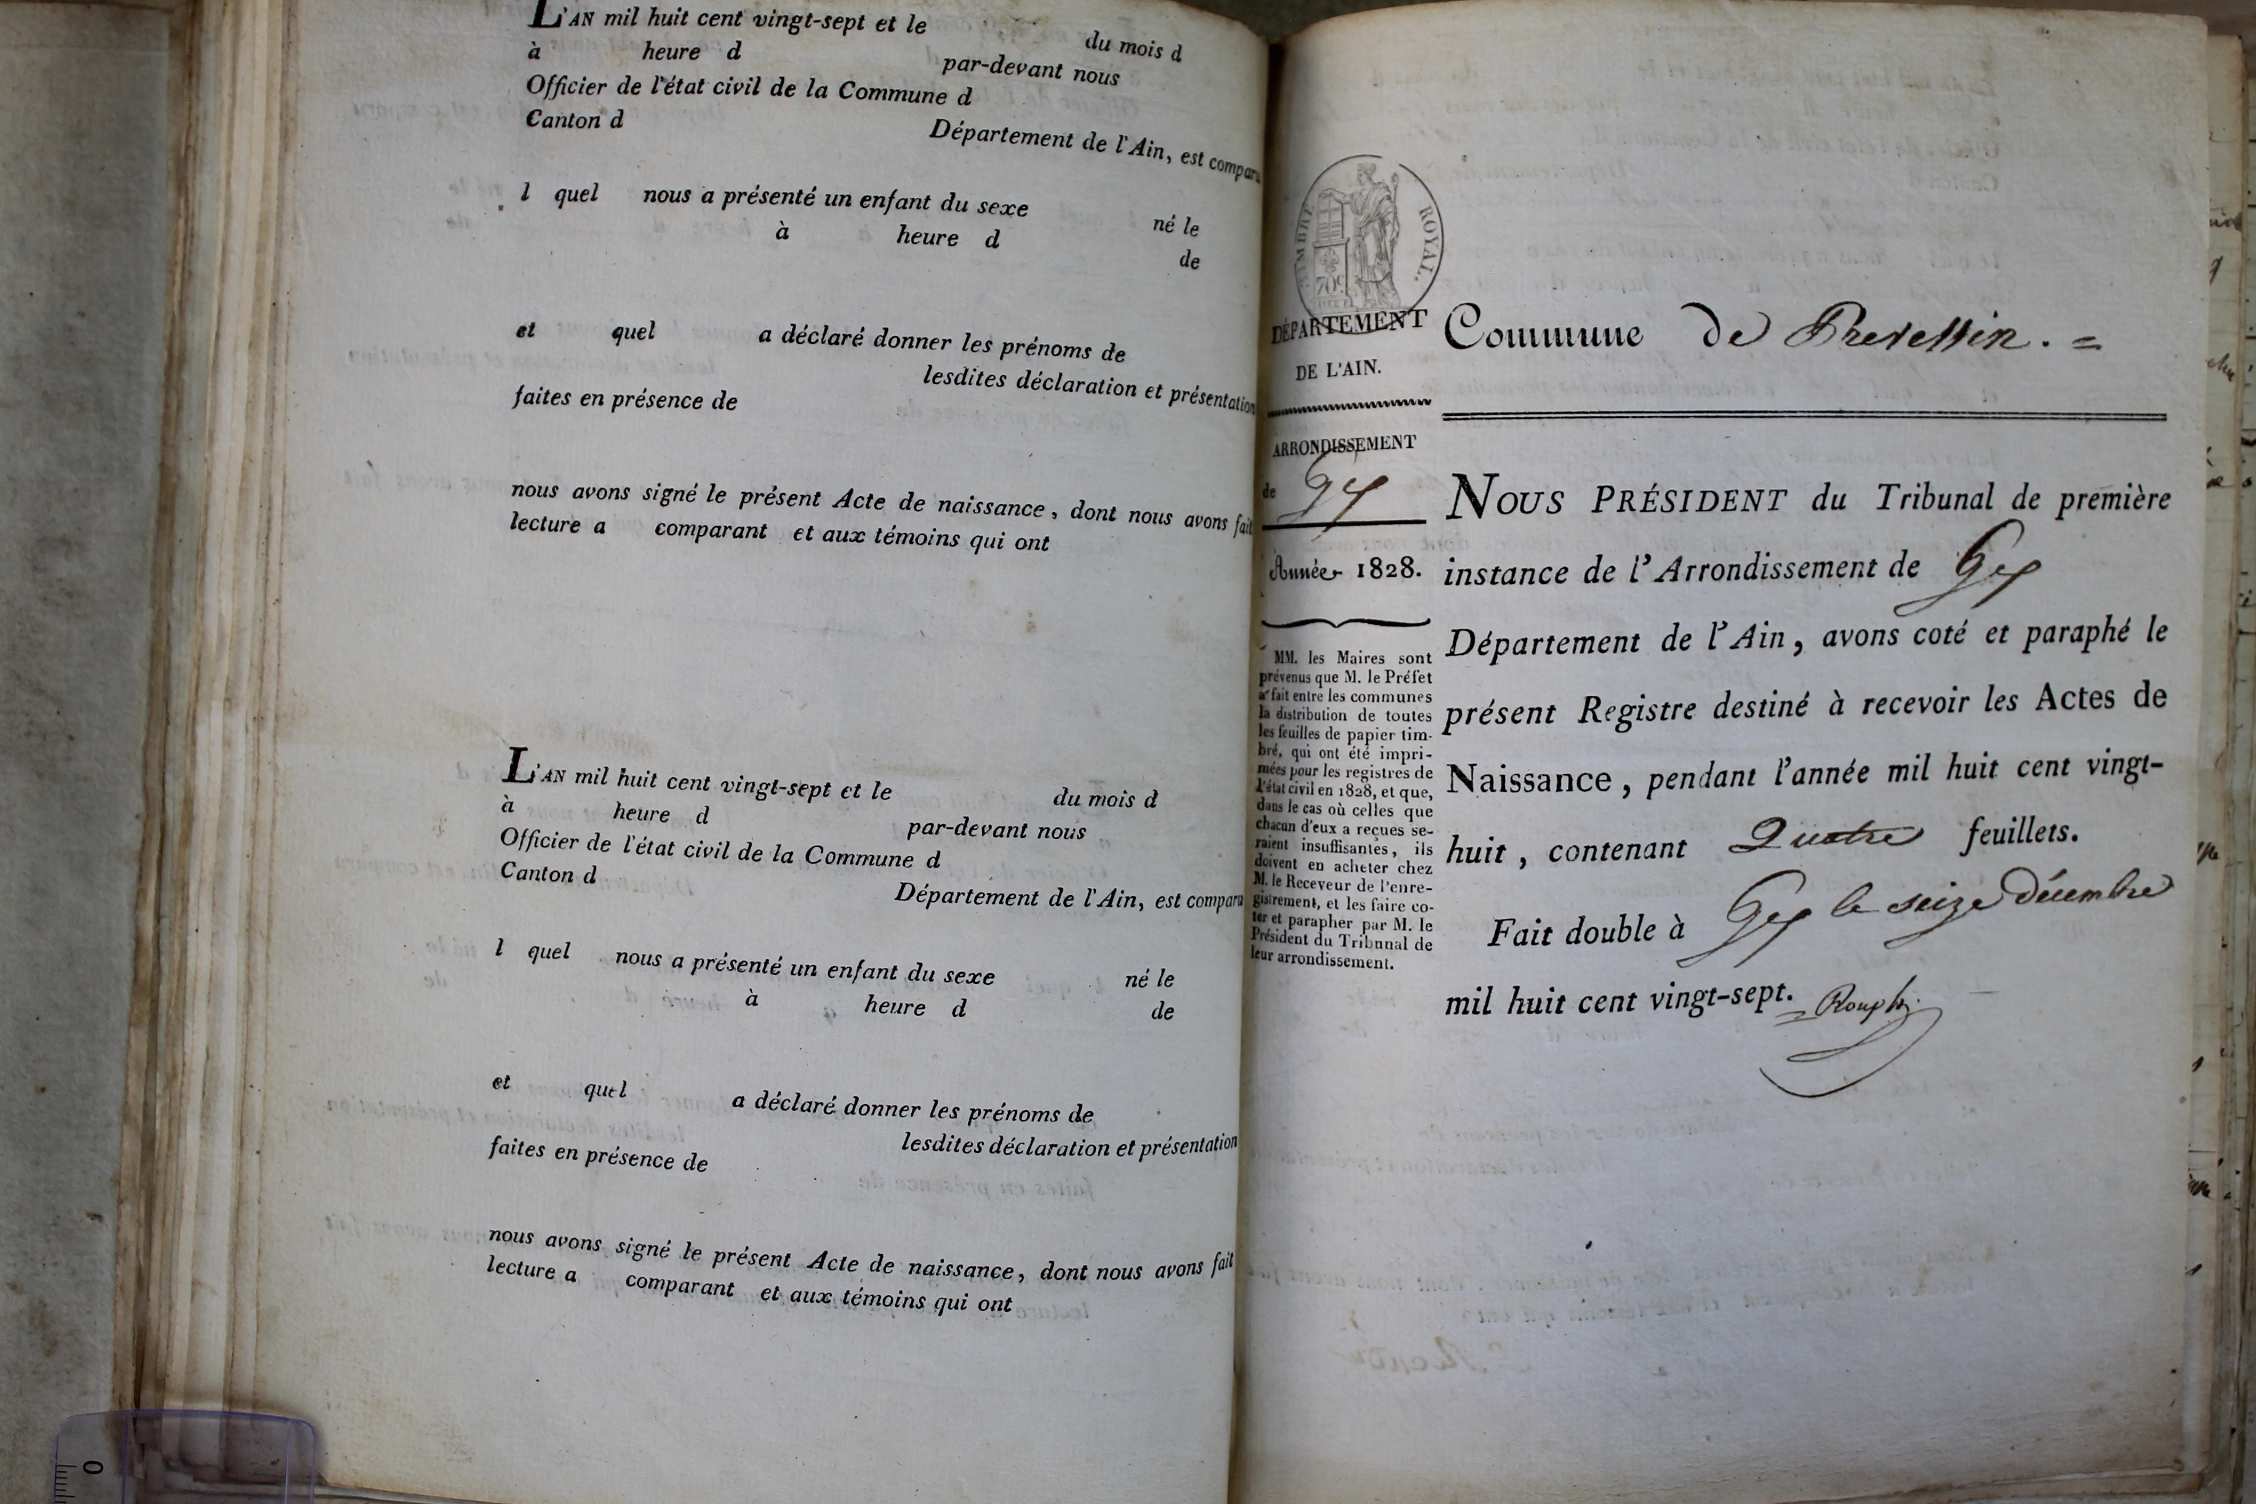 L'AN mil huit cent vingt-sept et le du mois d
à heure d par-devant nous
Officier de l'état civil de la Commune d
Canton d Département de l'Ain, est comparu
l quel nous a présenté un enfant du sexe né le
à heure d de
et quel a déclaré donner les prénoms de
lesdites déclaration et présentation
faites en présence de
nous avons signé le présent Acte de naissance, dont nous avons fait
lecture a comparant et aux témoins qui ont
L'AN mil huit cent vingt-sept et le du mois d
à heure d par-devant nous
Officier de l'état civil de la Commune d
Canton d Département de l'Ain, est comparu
l quel nous a présenté un enfant du sexe né le
à heure d de
et quel a déclaré donner les prénoms de
lesdites déclaration et présentation
faites en présence de
nous avons signé le présent Acte de naissance, dont nous avons fait
lecture a comparant et aux témoins qui ont
0
TIMBRE ROYAL.
70c
DÉPARTEMENT
DE L'AIN.
ARRONDISSEMENT
de Gex
Année 1828.
MM. les Maires sont
prévenus que M. le Préfet
a fait entre les communes
la distribution de toutes
les feuilles de papier tim-
bré, qui ont été impri-
mées pour les registres de
l'état civil en 1828, et que,
dans le cas où celles que
chacun d'eux a reçues se-
raient insuffisantes, ils
doivent en acheter chez
M. le Receveur de l'enre-
gistrement, et les faire co-
ter et parapher par M. le
Président du Tribunal de
leur arrondissement.
Commune de Prevessin. =
NOUS PRÉSIDENT du Tribunal de première
instance de l'Arrondissement de Gex
Département de l'Ain, avons coté et paraphé le
présent Registre destiné à recevoir les Actes de
Naissance, pendant l'année mil huit cent vingt-
huit, contenant Quatre feuillets.
Fait double à Gex le seize décembre
mil huit cent vingt-sept.